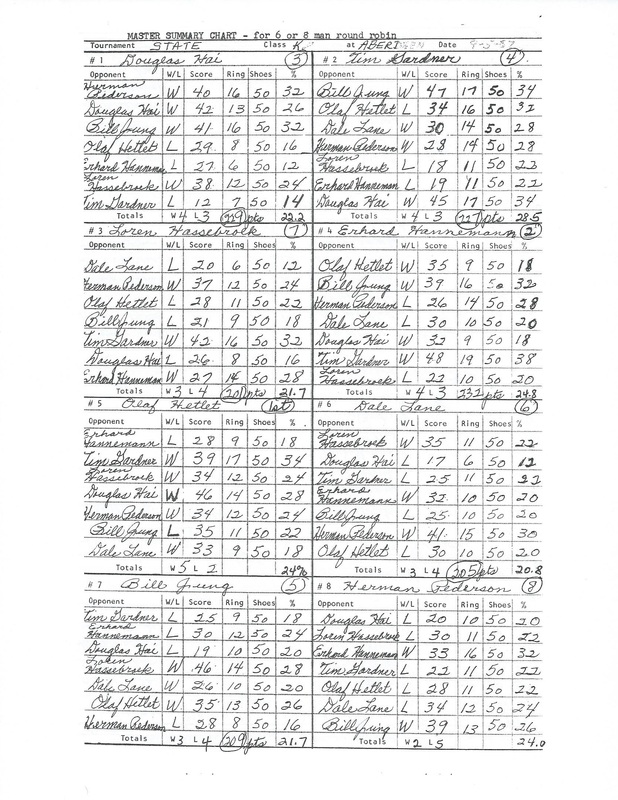 MASTER SUMMARY CHART - for 6 or 8 man round robin
Tournament STATE Class K at ABERDEEN Date 9-5-57
# 1 Douglas Hai (3)
Opponent W/L Score Ring Shoes %
Herman Pederson W 40 16 50 32
Douglas Hai W 42 13 50 26
Bill Jung W 41 16 50 32
Olaf Hetlet L 29 8 50 16
Erhard Hanneman L 27 6 50 12
Loren Hassebroek W 38 12 50 24
Tim Gardner L 12 7 50 14
Totals W 4 L 3 229 pts 22.2
# 2 Tim Gardner (4)
Opponent W/L Score Ring Shoes %
Bill Jung W 47 17 50 34
Olaf Hetlet L 34 16 50 32
Dale Lane W 30 14 50 28
Herman Pederson W 28 14 50 28
Loren Hassebroek L 18 11 50 22
Erhard Hanneman L 19 11 50 22
Douglas Hai W 45 17 50 34
Totals W 4 L 3 227 pts 28.5
# 3 Loren Hassebroek (7)
Opponent W/L Score Ring Shoes %
Dale Lane L 20 6 50 12
Herman Pederson W 37 12 50 24
Olaf Hetlet L 28 11 50 22
Bill Jung L 21 9 50 18
Tim Gardner W 42 16 50 32
Douglas Hai L 26 8 50 16
Erhard Hanneman W 27 14 50 28
Totals W 3 L 4 201 pts 21.7
# 4 Erhard Hannemann (2)
Opponent W/L Score Ring Shoes %
Olaf Hetlet W 35 9 50 18
Bill Jung W 39 16 50 32
Herman Pederson L 26 14 50 28
Dale Lane L 30 10 50 20
Douglas Hai W 32 9 50 18
Tim Gardner W 48 19 50 38
Loren Hassebroek L 22 10 50 20
Totals W 4 L 3 232 pts 24.8
# 5 Olaf Hetlet (1st)
Opponent W/L Score Ring Shoes %
Erhard Hannemann L 28 9 50 18
Tim Gardner W 39 17 50 34
Loren Hassebrock W 34 12 50 24
Douglas Hai W 46 14 50 28
Herman Pederson W 34 12 50 24
Bill Jung L 35 11 50 22
Dale Lane W 33 9 50 18
Totals W 5 L 2 24%
# 6 Dale Lane (6)
Opponent W/L Score Ring Shoes %
Loren Hassebrock W 35 11 50 22
Douglas Hai L 17 6 50 12
Tim Gardner L 25 11 50 22
Erhard Hannemann W 32 10 50 20
Bill Jung L 25 10 50 20
Herman Pederson W 41 15 50 30
Olaf Hetlet L 30 10 50 20
Totals W 3 L 4 205 pts 20.8
# 7 Bill Jung (5)
Opponent W/L Score Ring Shoes %
Tim Gardner L 25 9 50 18
Erhard Hannemann L 30 12 50 24
Douglas Hai L 19 10 50 20
Loren Hassebroek W 46 14 50 28
Dale Lane W 26 10 50 20
Olaf Hetlet W 35 13 50 26
Herman Pederson L 28 8 50 16
Totals W 3 L 4 209 pts 21.7
# 8 Herman Pederson (8)
Opponent W/L Score Ring Shoes %
Douglas Hai L 20 10 50 20
Loren Hassebrok L 30 11 50 22
Erhard Hanneman W 33 16 50 32
Tim Gardner L 22 11 50 22
Olaf Hetlet L 28 11 50 22
Dale Lane L 34 12 50 24
Bill Jung W 39 13 50 26
Totals W 2 L 5 24.0